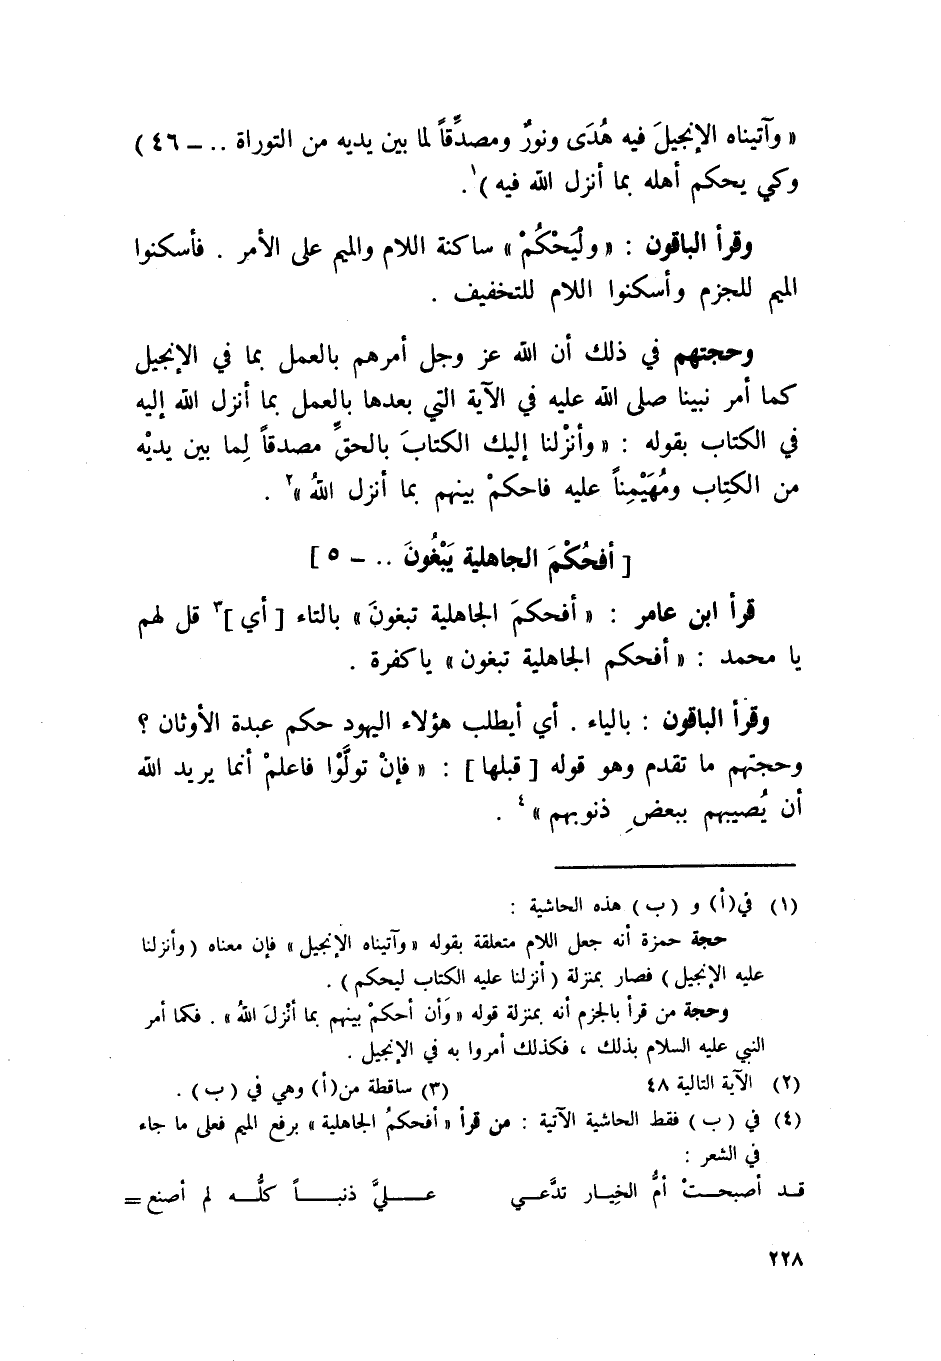 « وآتيناه الإنجيلَ فيه هُدَى ونورٌ ومصدِّقاً لما بين يديه من التوراة .. ــ ٤٦ )
وكي يحكم أهله بما أنزل الله فيه )١.
وقرأ الباقون : « ولْيَحْكُمْ » ساكنة اللام والميم على الأمر . فأسكنوا
الميم للجزم وأسكنوا اللام للتخفيف .
وحجتهم في ذلك أن الله عز وجل أمرهم بالعمل بما في الإنجيل
كما أمر نبينا صلى الله عليه في الآية التي بعدها بالعمل بما أنزل الله إليه
في الكتاب بقوله : « وأنزْلنا إليك الكتابَ بالحقِّ مصدقاً لِما بين يديْه
من الكتِاب ومُهَيْمِناً عليه فاحكمْ بينهم بما أنزل اللهُ »٢ .
[ أفحُكْمَ الجاهلية يَبْغُونَ .. ــ ٥ ]
قرأ ابن عامر : « أفحكمَ الجاهلية تبغونَ » بالتاء [ أي ]٣ قل لهم
يا محمد : « أفحكم الجاهلية تبغون » ياكفرة .
وقرأ الباقون : بالياء . أي أيطلب هؤلاء اليهود حكم عبدة الأوثان ؟
وحجتهم ما تقدم وهو قوله [ قبلها ] : « فإنْ تولَّوْا فاعلمْ أنما يريد الله
أن يُصيبهم ببعضِ ذنوبهم »٤ .
(١) في(أ) و (ب) هذه الحاشية :
حجة حمزة أنه جعل اللام متعلقة بقوله « وآتيناه الإنجيل » فإن معناه (وأنزلنا
عليه الإنجيل) فصار بمنزلة (أنزلنا عليه الكتاب ليحكم) .
وحجة من قرأ بالجزم أنه بمنزلة قوله « وَأن أحكمْ بينهم بما أنْزلَ اللهُ » . فكما أمر
النبي عليه السلام بذلك ، فكذلك أمروا به في الإنجيل .
(٢) الآية التالية ٤٨ (٣) ساقطة من(أ) وهي في (ب) .
(٤) في (ب) فقط الحاشية الآتية : من قرأ « أفحكمُ الجاهلية » برفع الميم فعلى ما جاء
في الشعر :
قـد أصبحـتْ أمُّ الخِيـار تدَّعـي عـــليَّ ذنبـــاً كلُّـــه لم أصنع =
٢٢٨